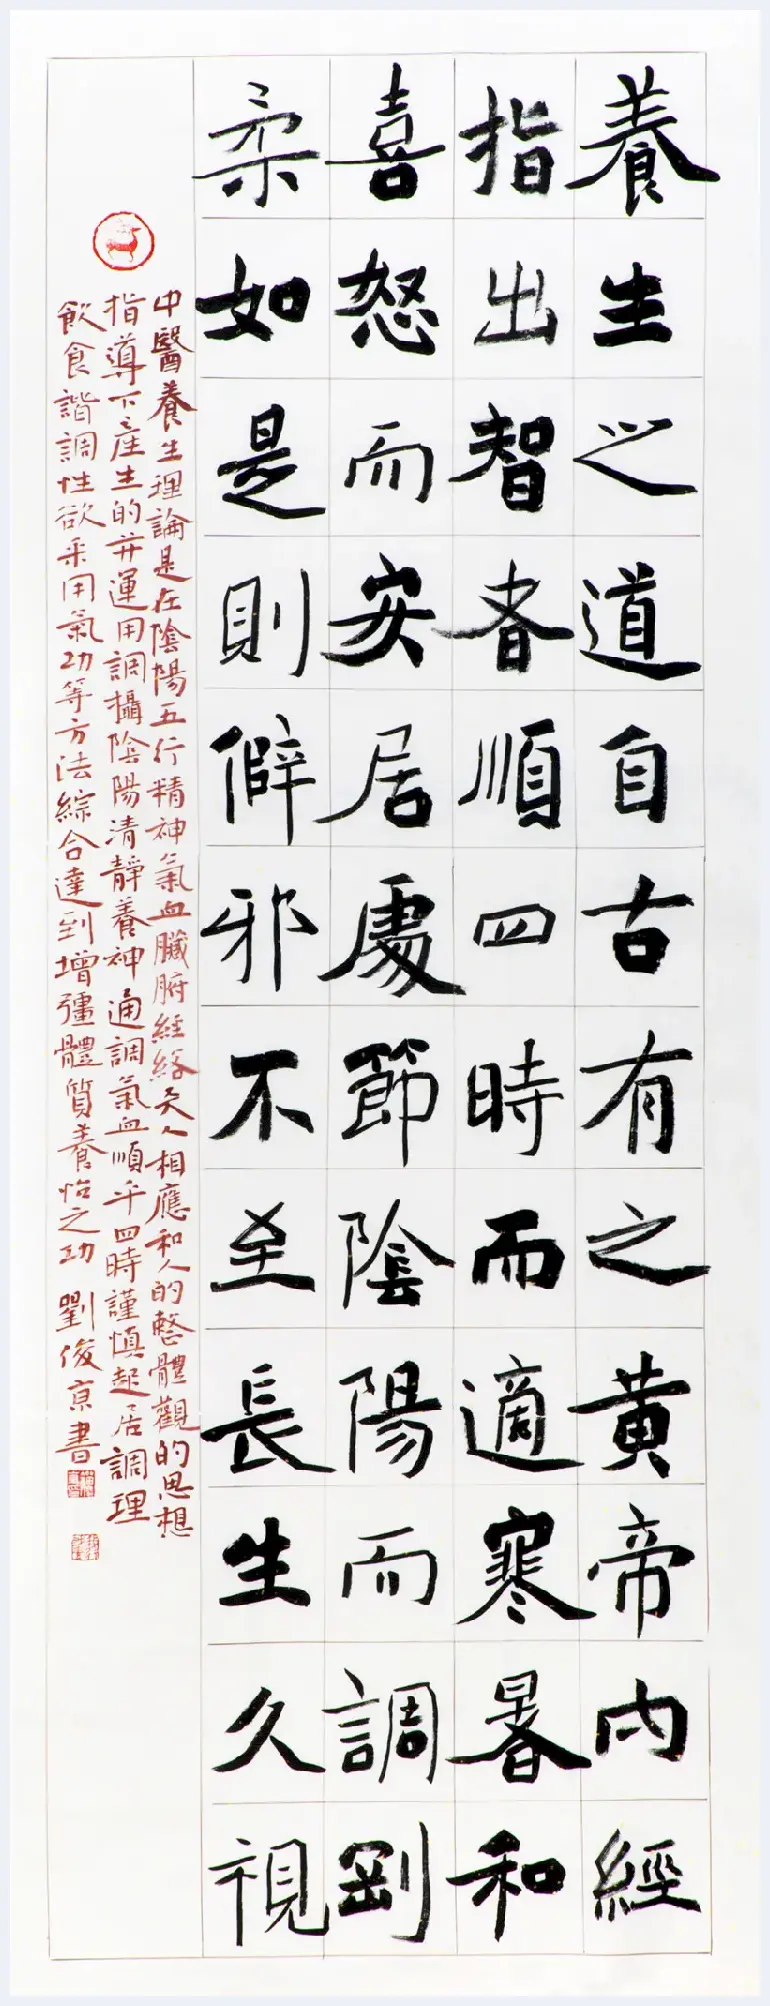 養生之道自古有之黄帝内經
指出智者順四時而適寒暑和
喜怒而安居處節陰陽而調剛
柔如是則僻邪不至長生久視
中醫養生理論是在陰陽五行精神氣血臟腑經絡天人相應和人的整體觀的思想
指導下産生的并運用調攝陰陽清靜養神通調氣血順乎四時謹慎起居調理
飲食諧調性欲采用氣功等方法綜合達到增彊體質養怡之功 劉俊京書